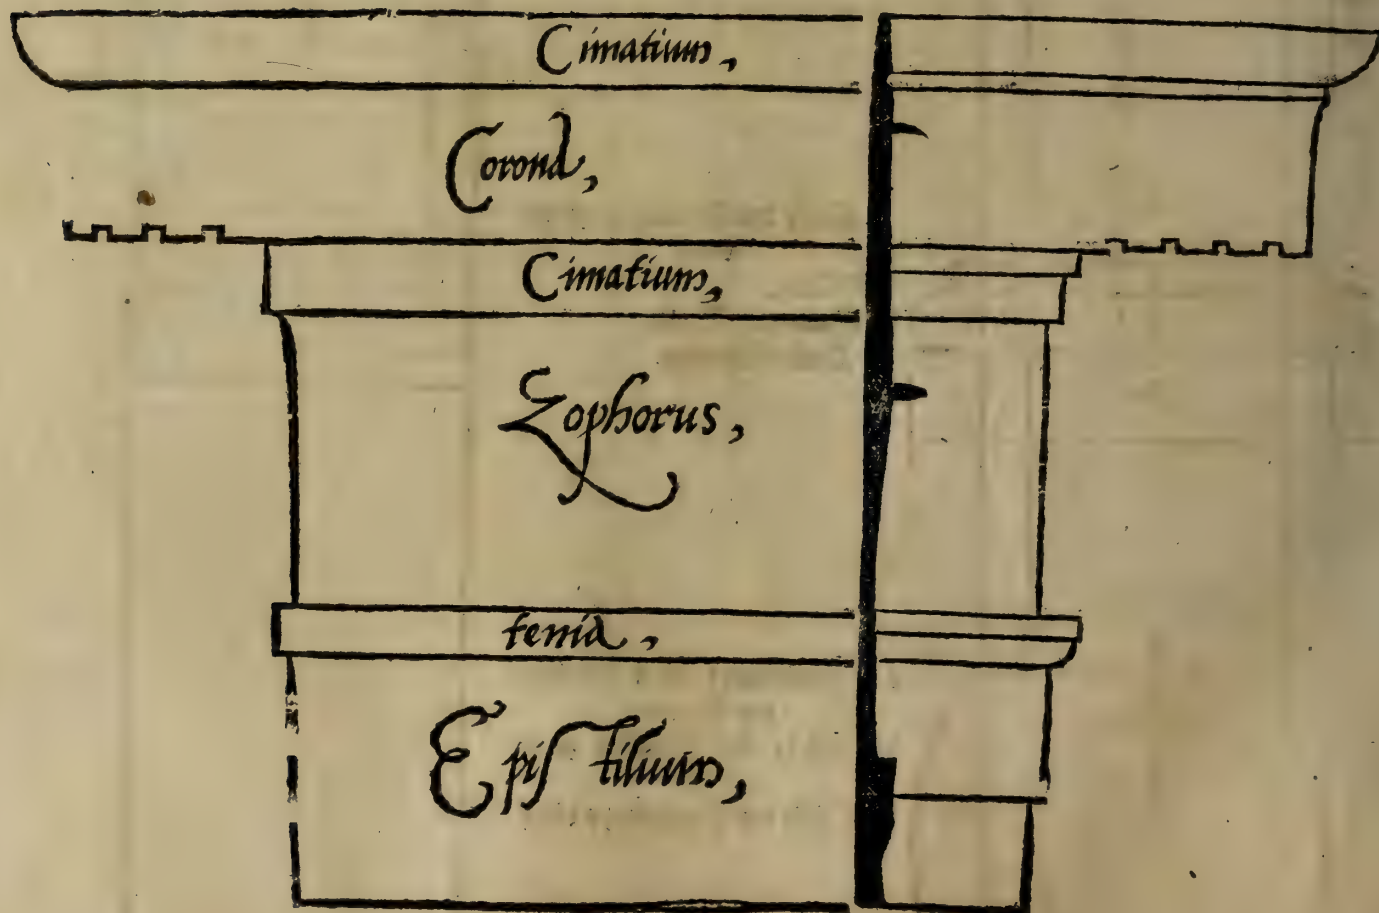 Cimatium,
Corona,
Cimatium,
Zophorus,
tenia,
Epiſtilium,